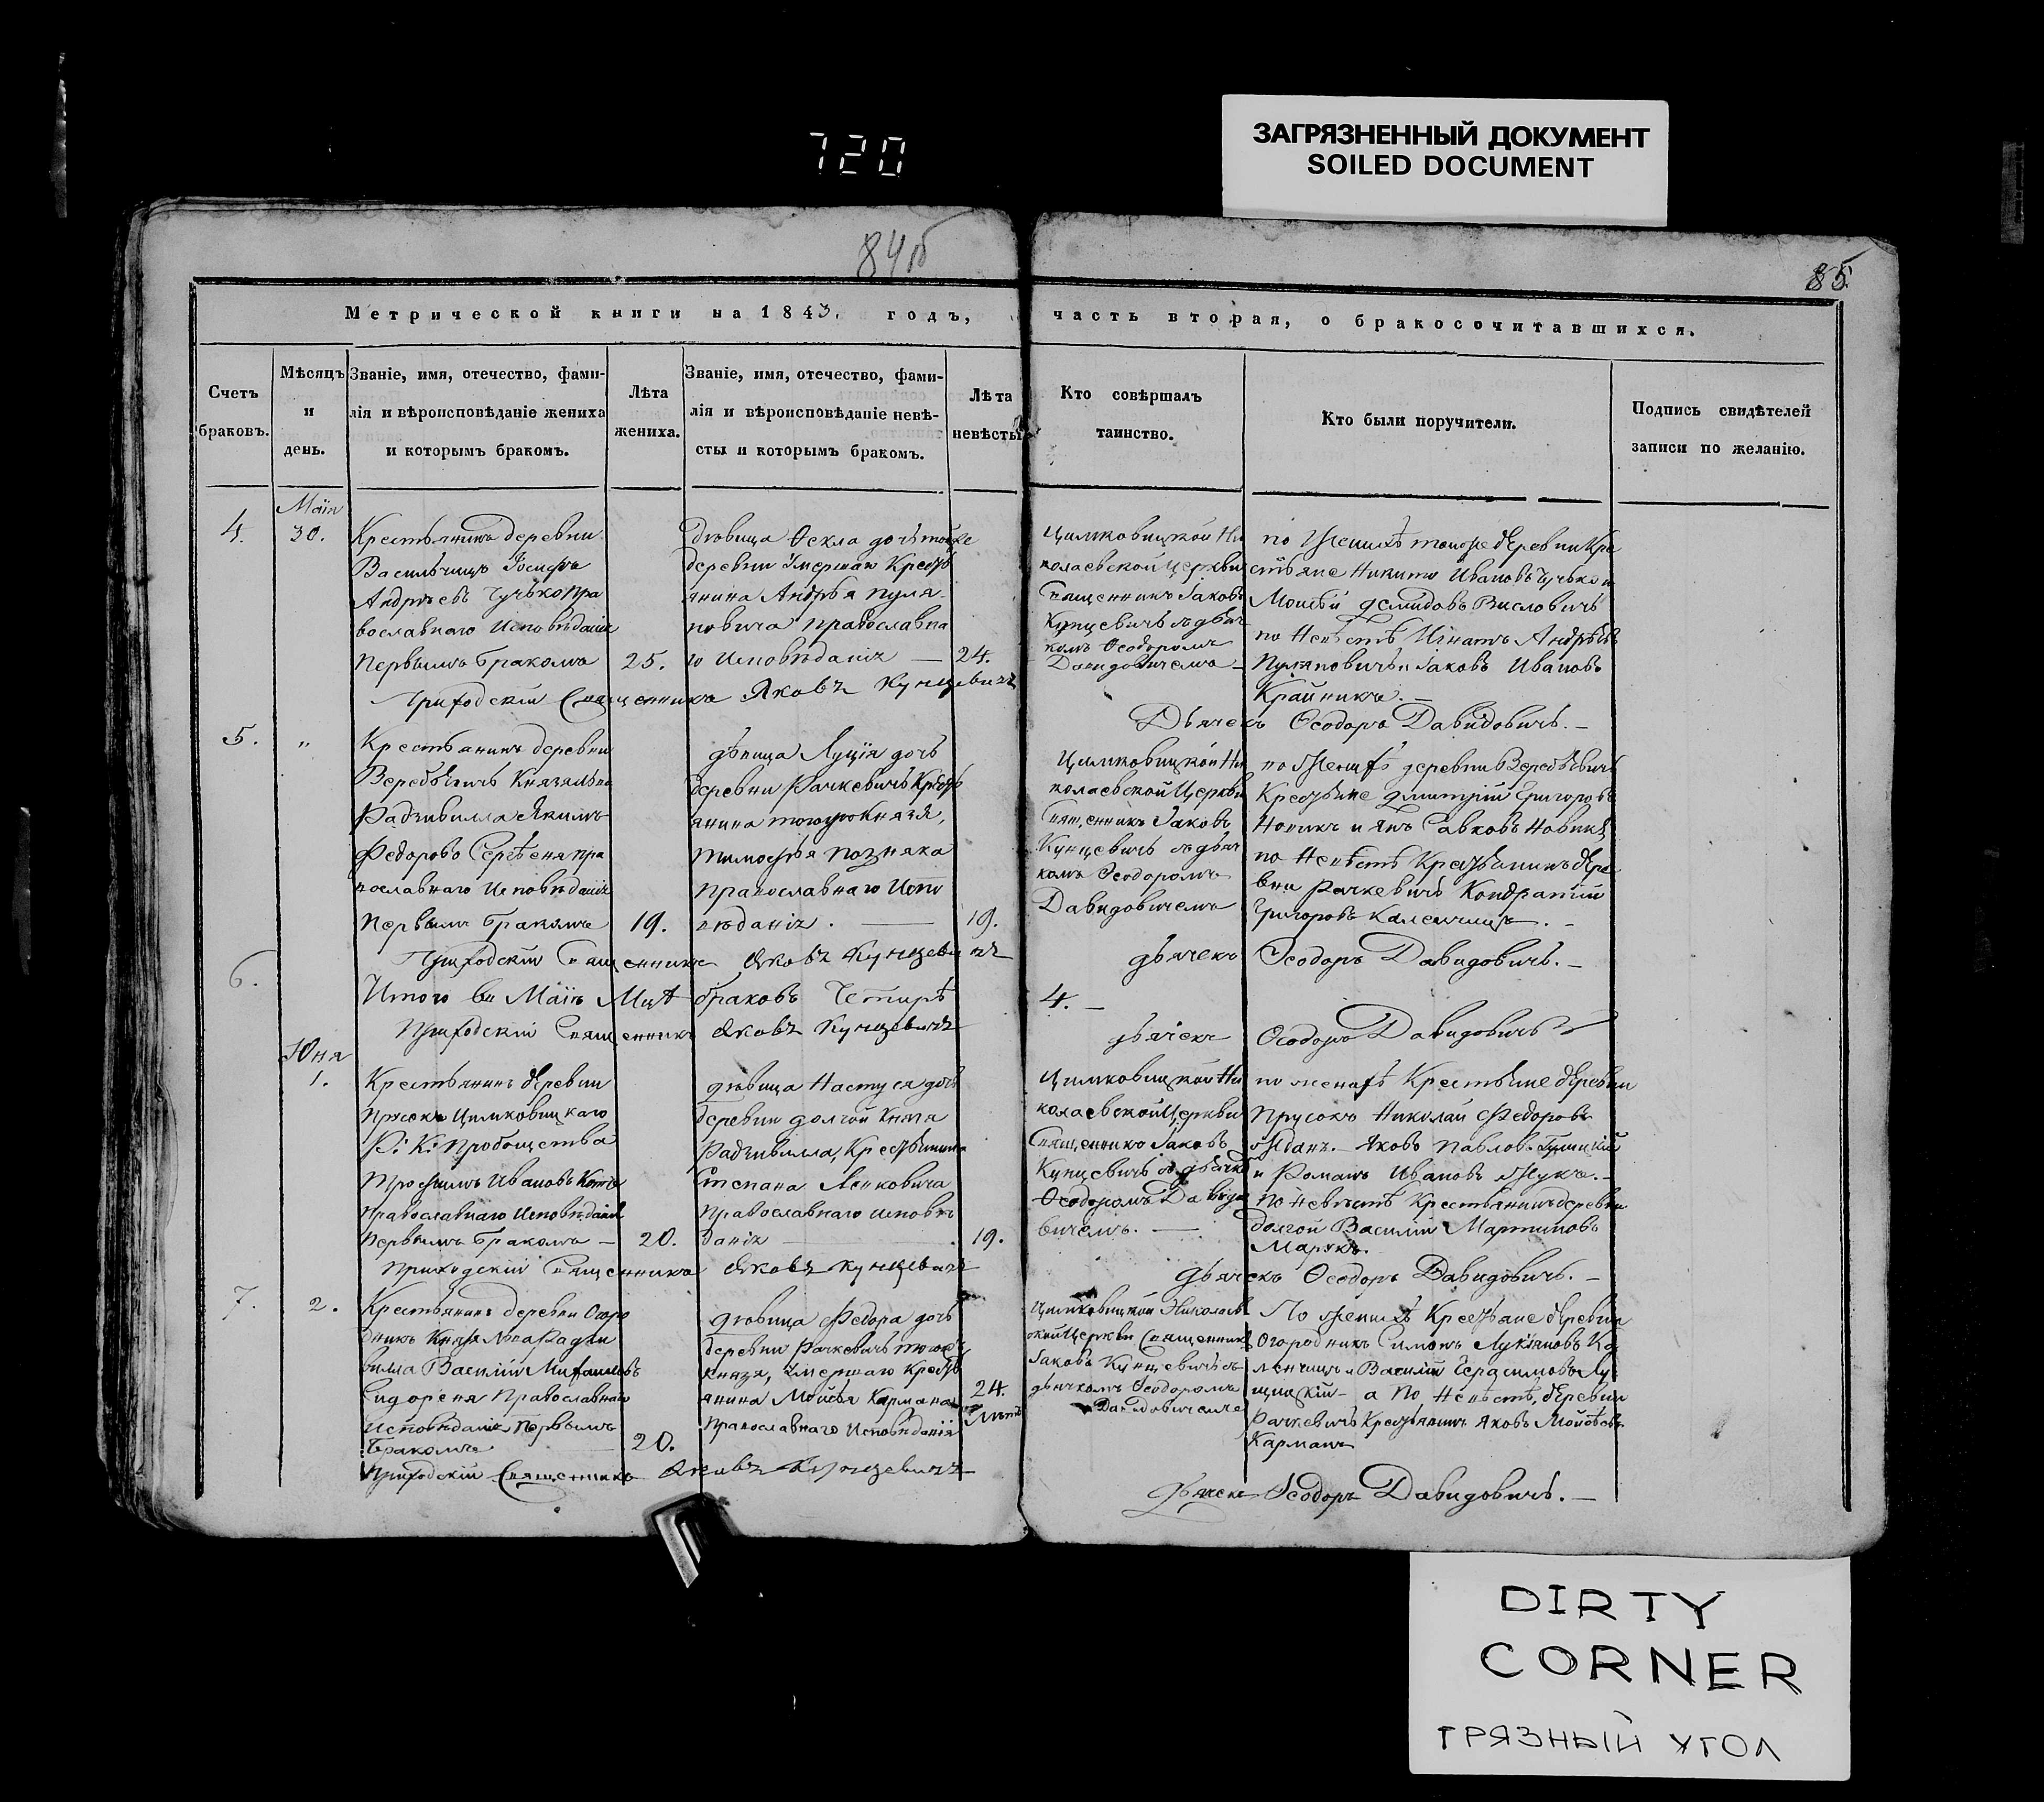 720
ЗАГРЯЗНЕННЫЙ ДОКУМЕНТ
SOILED DOCUMENT
84
85.
Метрической книги на 1843. годъ, часть вторая, о бракосочитавшихся.
Счетъ браковъ.
Мѣсяцъ и день.
Званіе, имя, отечество, фами-
лія и вѣроисповѣданіе жениха
и которымъ бракомъ.
Лѣта
жениха.
Званіе, имя, отечество, фами-
лія и вѣроисповѣданіе невѣ-
сты и которымъ бракомъ.
Лѣта
невѣсты
Кто совѣршалъ
таинство.
Кто были поручители.
Подпись свидѣтелей
записи по желанію.
4.
Маія
30.
Крестьянинъ деревни
Васильчицъ Іосифъ
Андрѣевъ Чучько пра
вославнаго Исповѣданія
Первымъ бракомъ
25.
дѣвица Ѳекла дочь тойже
деревни Умершаго Кресть
янина Андрѣя Пуля
новича православна
го Исповѣданія —
24.
Цимковицкой Ни
колаевской Церкви
Священникъ Іаковъ
Кунцевичъ съ дьяч
комъ Ѳеодоромъ
Давидовичемъ —
по Женихѣ тойже деревни Кре
стьяне Никита Ивановъ Чучько и
Моисей Демидовъ Висловичъ
по Невѣстѣ Игнатъ Андрѣевъ
Пуляновичъ и Іаковъ Ивановъ
Крайникъ. —
Приходскій Священникъ Яковъ Кунцевичъ
Дьячекъ Ѳеодоръ Давидовичъ. —
5.
"
Крестьянинъ деревни
Веребьевичъ Князя
Радзивилла Якимъ
Федоровъ пра
вославнаго Исповѣданія
Первымъ бракомъ
19.
дѣвица Луція дочь
деревни Рачкевичъ Кресть
янина тогожъ Князя,
Тимофѣя Позняка
Православнаго Испо
вѣданія. —
19.
Цимковицкой Ни
колаевской Церкви
Священникъ Іаковъ
Кунцевичъ съ дьяч
комъ Ѳеодоромъ
Давидовичемъ
по Женихѣ деревни Веребьевичъ
Крестьяне Дмитрій Григоровъ
Новикъ и Янъ Савковъ Новикъ
по Невѣстѣ Крестьянинъ дере
вни Рачкевичъ Кондратій
Григоровъ Каменчицъ. —
Приходскій Священникъ Яковъ Кунцевичъ
дьячекъ Ѳеодоръ Давидовичъ. —
6.
Итого въ Маіѣ Мцѣ браковъ Четырѣ 4. —
Приходскій Священникъ Яковъ Кунцевичъ
дьячекъ Ѳеодоръ Давидовичъ
Юня
1.
Крестьянинъ деревни
Прусокъ Цимковицкаго
Р: К: Пробощества
Трофимъ Ивановъ
Православнаго Исповѣданія
Первымъ бракомъ —
20.
дѣвица Настуся дочь
деревни долгой Князя
Радзивилла, Крестьянина
Степана Ленковича
Православнаго исповѣ
данія —
19.
Цимковицкой Ни
колаевской Церкви
Священникъ Іаковъ
Кунцевичъ съ дьячко
Ѳеодоромъ Давидо
вичемъ. —
по женихѣ Крестьяне деревни
Прусокъ Николай Федоровъ
Жданъ. Яковъ Павловъ
и Романъ Ивановъ Жукъ. —
по невѣстѣ Крестьянинъ деревни
долгой Василій Мартиновъ
Приходскій Священникъ Яковъ Кунцевичъ
Дьячекъ Ѳеодоръ Давидовичъ. —
7.
2.
Крестьянинъ деревни Огоро
дникъ Князя Радзи
вилла Василій Михайловъ
Сидореня Православнаго
Исповѣданія Первымъ
Бракомъ
20.
дѣвица Федора дочь
деревни Рачкевичъ тогожъ
Князя, Умершаго Кресть
янина Мойсѣя Кармана
Православнаго Исповѣданія
24.
Цимковицкой Николаев
ской Церкви Священникъ
Іаковъ Кунцевичъ съ
дьячкомъ Ѳеодоромъ
Давидовичемъ
По Женихѣ Крестьяне деревни
Огородникъ Симонъ Лукіяновъ Ка
менчицъ и Василій Герасимовъ Лу
щицкій — а По Невѣстѣ, деревни
Рачкевичъ Крестьянинъ Яковъ Мойсѣевъ
Карманъ
Приходскій Священникъ Яковъ Кунцевичъ
Дьячекъ Ѳеодоръ Давидовичъ. —
DIRTY
CORNER
ГРЯЗНЫЙ УГОЛ